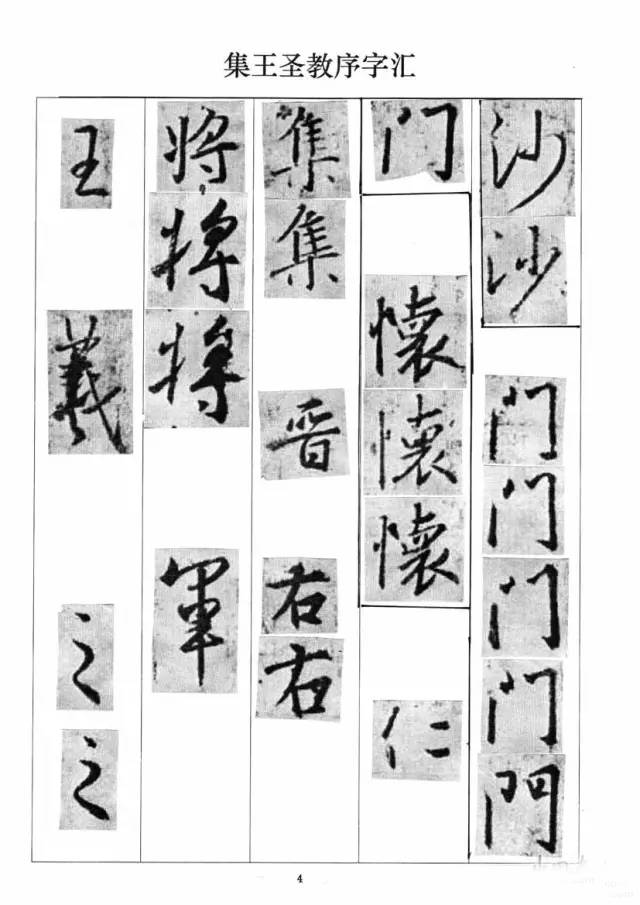 集王圣教序字汇
沙沙門門門門門
門懷懷懷仁
集集晋右右
將將將軍
王羲之之
4